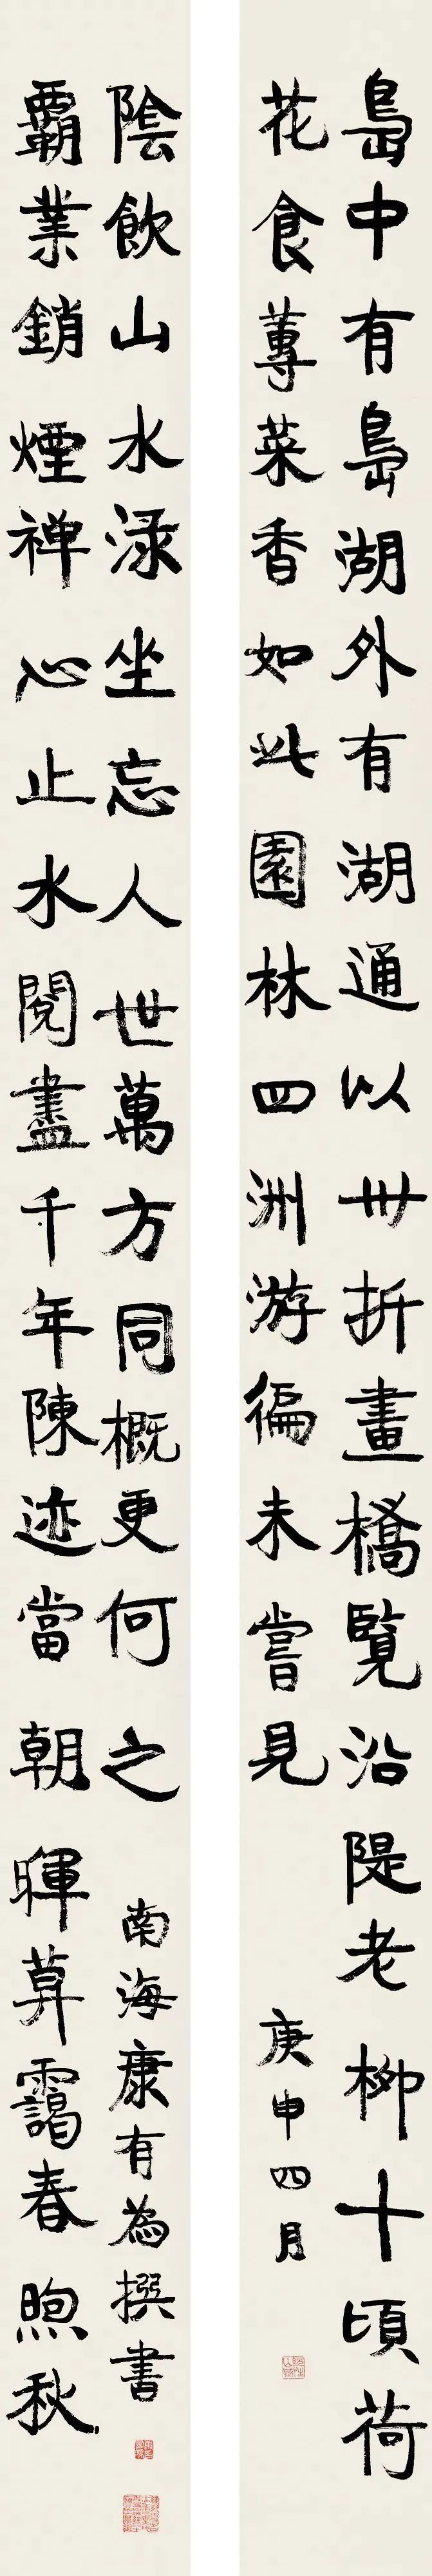 島中有島湖外有湖通以卅折畫橋覽沿隄老柳十頃荷
花食蓴菜香如此園林四洲游徧未嘗見
庚申四月
霸業銷煙禪心止水閱盡千年陳迹當朝暉莫靄春煦秋
陰飲山水渌坐忘人世萬方同概更何之
南海康有為撰書